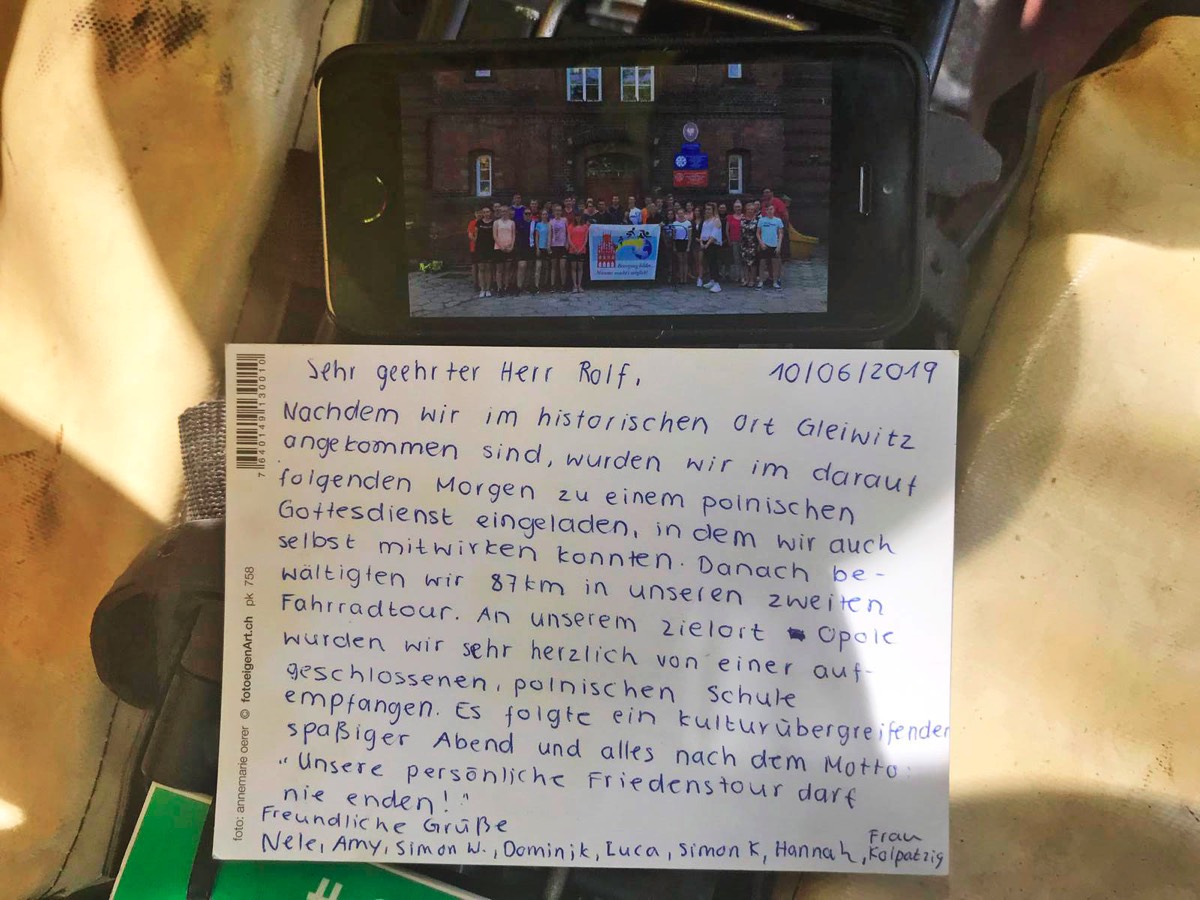 Sehr geehrter Herr Rolf,
10/06/2019
Nachdem wir im historischen Ort Gleiwitz
angekommen sind, wurden wir im darauf
folgenden Morgen zu einem polnischen
Gottesdienst eingeladen, in dem wir auch
selbst mitwirken konnten. Danach be-
wältigten wir 87km in unseren zweiten
Fahrradtour. An unserem Zielort Opole
wurden wir sehr herzlich von einer auf-
geschlossenen, polnischen Schule
empfangen. Es folgte ein kulturübergreifender
spaßiger Abend und alles nach dem Motto:
"Unsere persönliche Friedenstour darf
nie enden!"
Freundliche Grüße
Nele, Amy, Simon W., Dominik, Luca, Simon K, Hannah, Frau
Kolpatzig
7 640149 130010
foto: annemarie oerer © fotoeigenArt.ch pk 758